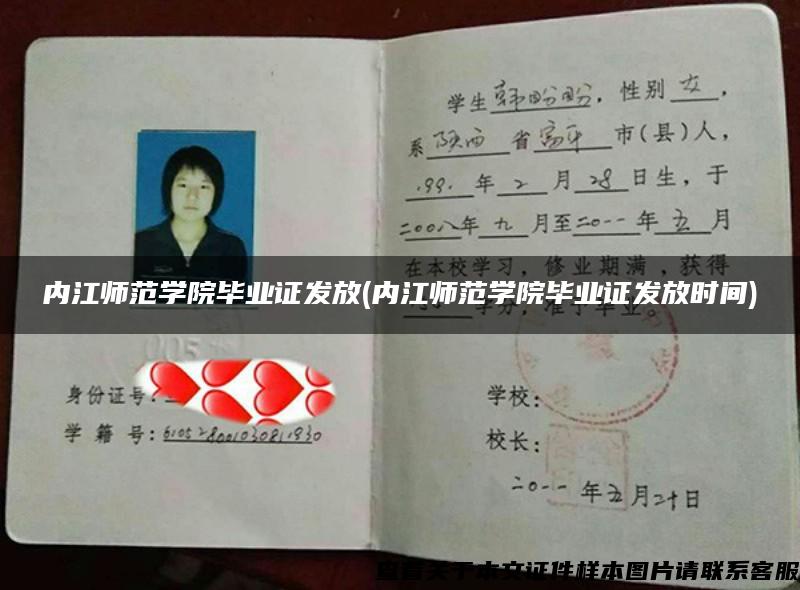 学生韩盼盼，性别女，
系陕西省富平市(县)人，
1991年2月28日生，于
二00八年九月至二0一一年五月
在本校学习，修业期满，获得
内江师范学院毕业证发放(内江师范学院毕业证发放时间)
学分，准予毕业。
005
身份证号：
学籍号：610528001030811930
学校：
校长：
二0一一年五月二十日
查看关于本文证件样本图片请联系客服